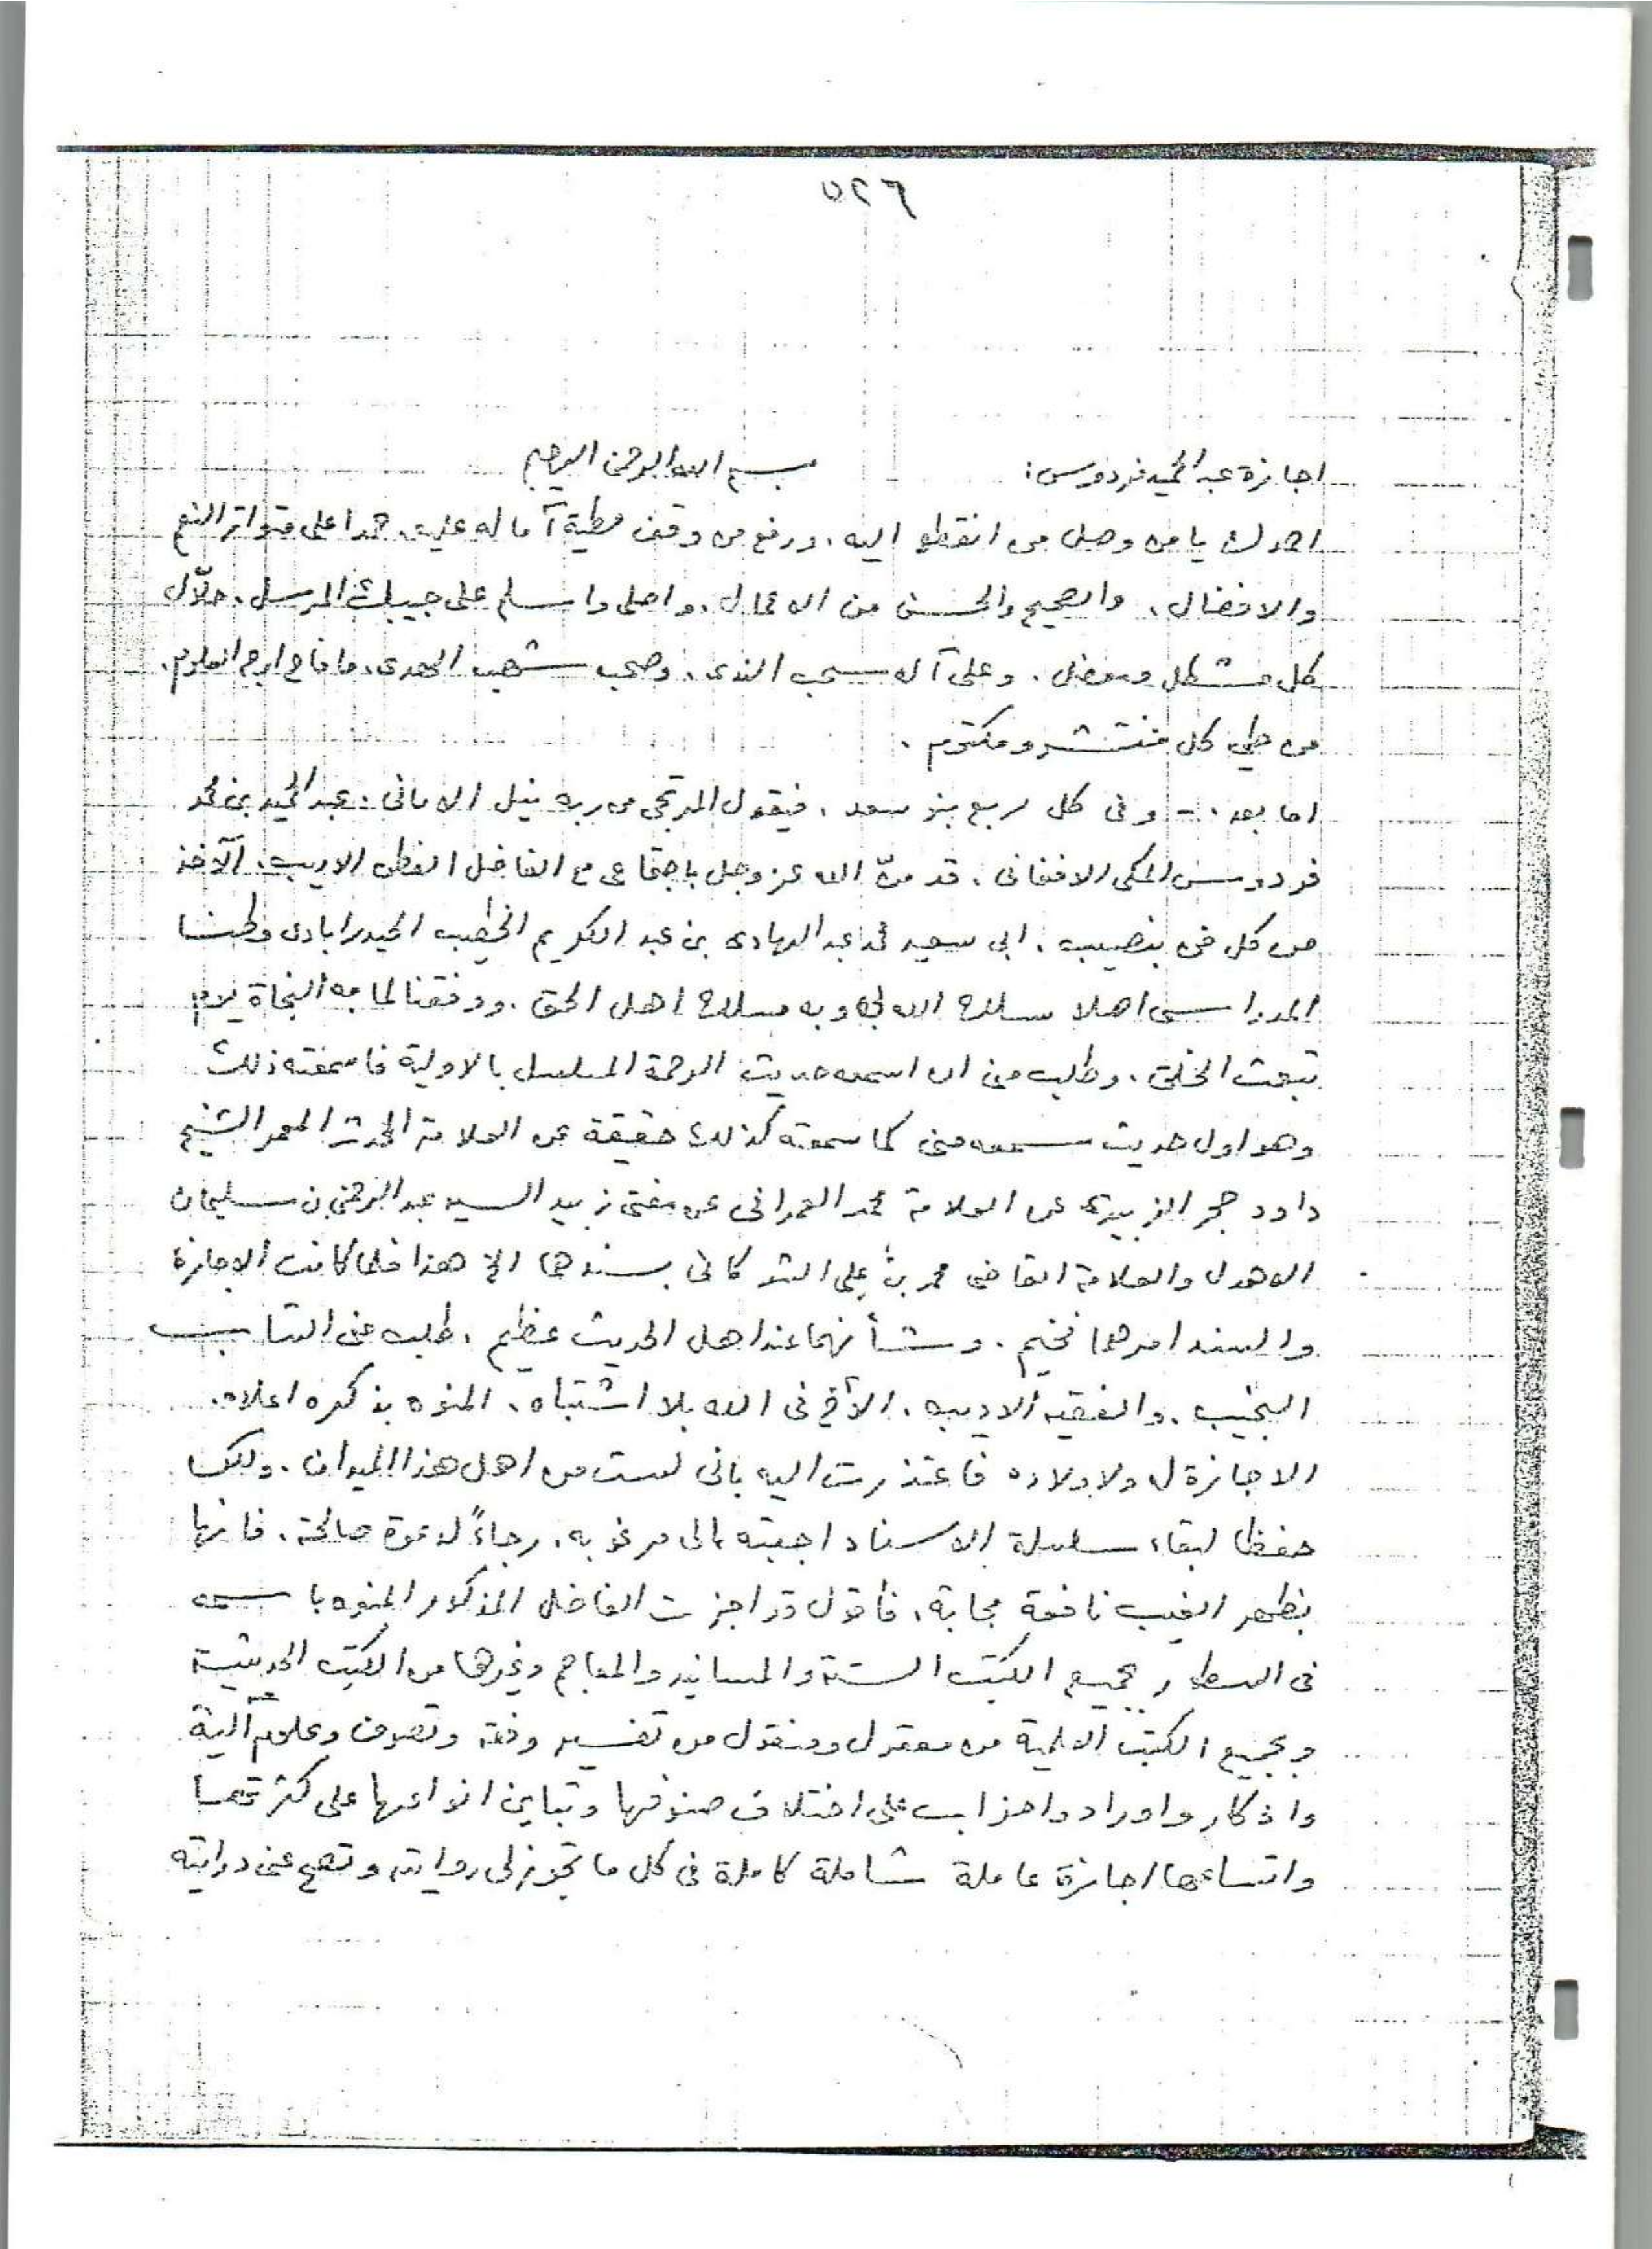 ٥٢٦
اجازة عبد الحميد فردوس: بسم الله الرحمن الرحيم
احمدك يا من وصل من انقطع اليه، ورفع من وقف مطية آماله عليه. حمدا على متواتر النعم
والافضال، والصحيح والحسن من الاعمال. واصلى واسلم على حبيبك المرسل. حلّال
كل مشكل ومعضل. وعلى آله سحب الندى. وصحبه شهب الهدى. ما فاح اريج العلوم.
من طي كل منتشر ومكتوم.
اما بعد: - وفى كل ربع بنو سعد، فيقول المرتجى من ربه نيل الامانى: عبد الحميد بن محمد
فردوس المكى الافغانى، قد منّ الله عز وجل باجتماعى مع الفاضل الفطن الاديب، الآخذ
من كل فن بنصيب، ابى سعيد محمد عبد الهادى بن عبد الكريم الخطيب الحيدرابادى وطنا
المدراسى اصلا سلك الله لى وبه مسلك اهل الحق. ووفقنا لما به النجاة يوم
تبعث الخلق، وطلب منى ان اسمعه حديث الرحمة المسلسل بالاولية فاسمعته ذلك
وهو اول حديث سمعه منى كما سمعته كذلك حقيقة عن العلامة المحدث المعمر الشيخ
داود حجر الزبيدى عن العلامة محمد العمرانى عن مفتى زبيد السيد عبد الرحمن بن سليمان
الاهدل والعلامة القاضى محمد بن على الشوكانى بسندهما الخ هذا فلما كانت الاجازة
والسند امرهما فخيم. وشأنهما عند اهل الحديث عظيم، طلب منى الشاب
النجيب، والفقيه الاديب، الأخ فى الله بلا اشتباه، المنوه بذكره اعلاه.
الاجازة له ولاولاده فاعتذرت اليه بانى لست من اهل هذا الميدان. ولكن
حفظا لبقاء سلسلة الاسناد اجبته الى مرغوبه، رجاءً لدعوة صالحة، فانها
بظهر الغيب نافعة مجابة، فاقول قد اجزت الفاضل المذكور المنوه باسمه
فى السطور بجميع الكتب الستة والمسانيد والمعاجم وغيرها من الكتب الحديثية
وبجميع الكتب العلمية من معقول ومنقول من تفسير وفقه وتصوف وعلوم آلية
واذكار واوراد واحزاب على اختلاف صنوفها وتباين انواعها على كثرتها
واتساعها اجازة عاملة شاملة كاملة فى كل ما تجوز لى روايته وتصح عنى درايته